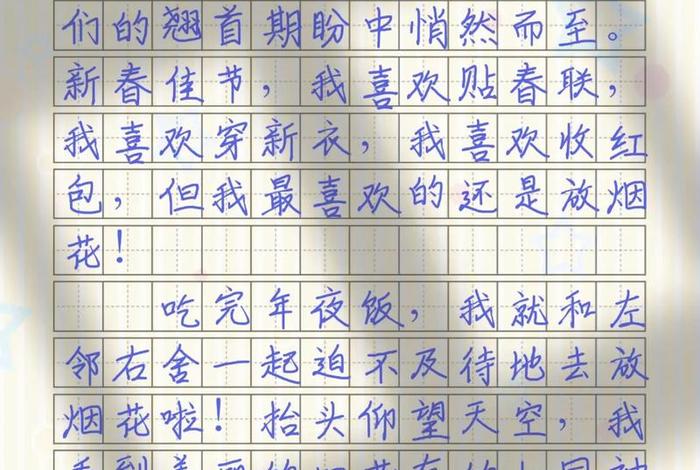 们的翘首期盼中悄然而至。
新春佳节，我喜欢贴春联，
我喜欢穿新衣，我喜欢收红
包，但我最喜欢的还是放烟
花！
吃完年夜饭，我就和左
邻右舍一起迫不及待地去放
烟花啦！抬头仰望天空，我